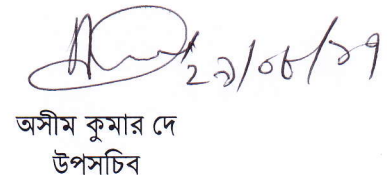 ২৯/০৮/১৭
অসীম কুমার দে
উপসচিব